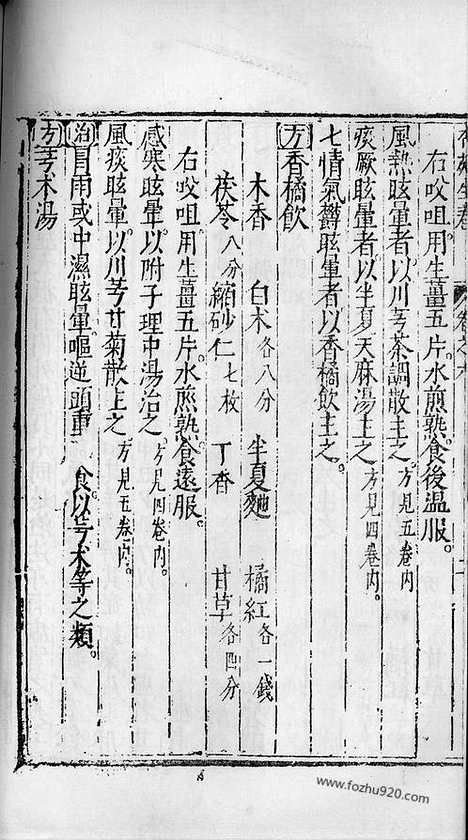 右㕮咀用生薑五片水煎熟食後温服。
風熱眩暈者以川芎茶調散主之方見五卷內
痰厥眩暈者以半夏天麻湯主之方見四卷內。
七情氣欝眩暈者以香橘飲主之。
方香橘飲
木香 白朮各八分 半夏麯 橘紅各一錢
茯苓八分 縮砂仁七枚 丁香 甘草各四分
右㕮咀用生薑五片水煎熟食遠服。
感寒眩暈以附子理中湯治之方見四卷內。
風痰眩暈以川芎甘菊散主之方見五卷內。
治冒雨或中濕眩暈嘔逆頭重 食以芎朮等之類。
方芎朮湯
www.fozhu920.com